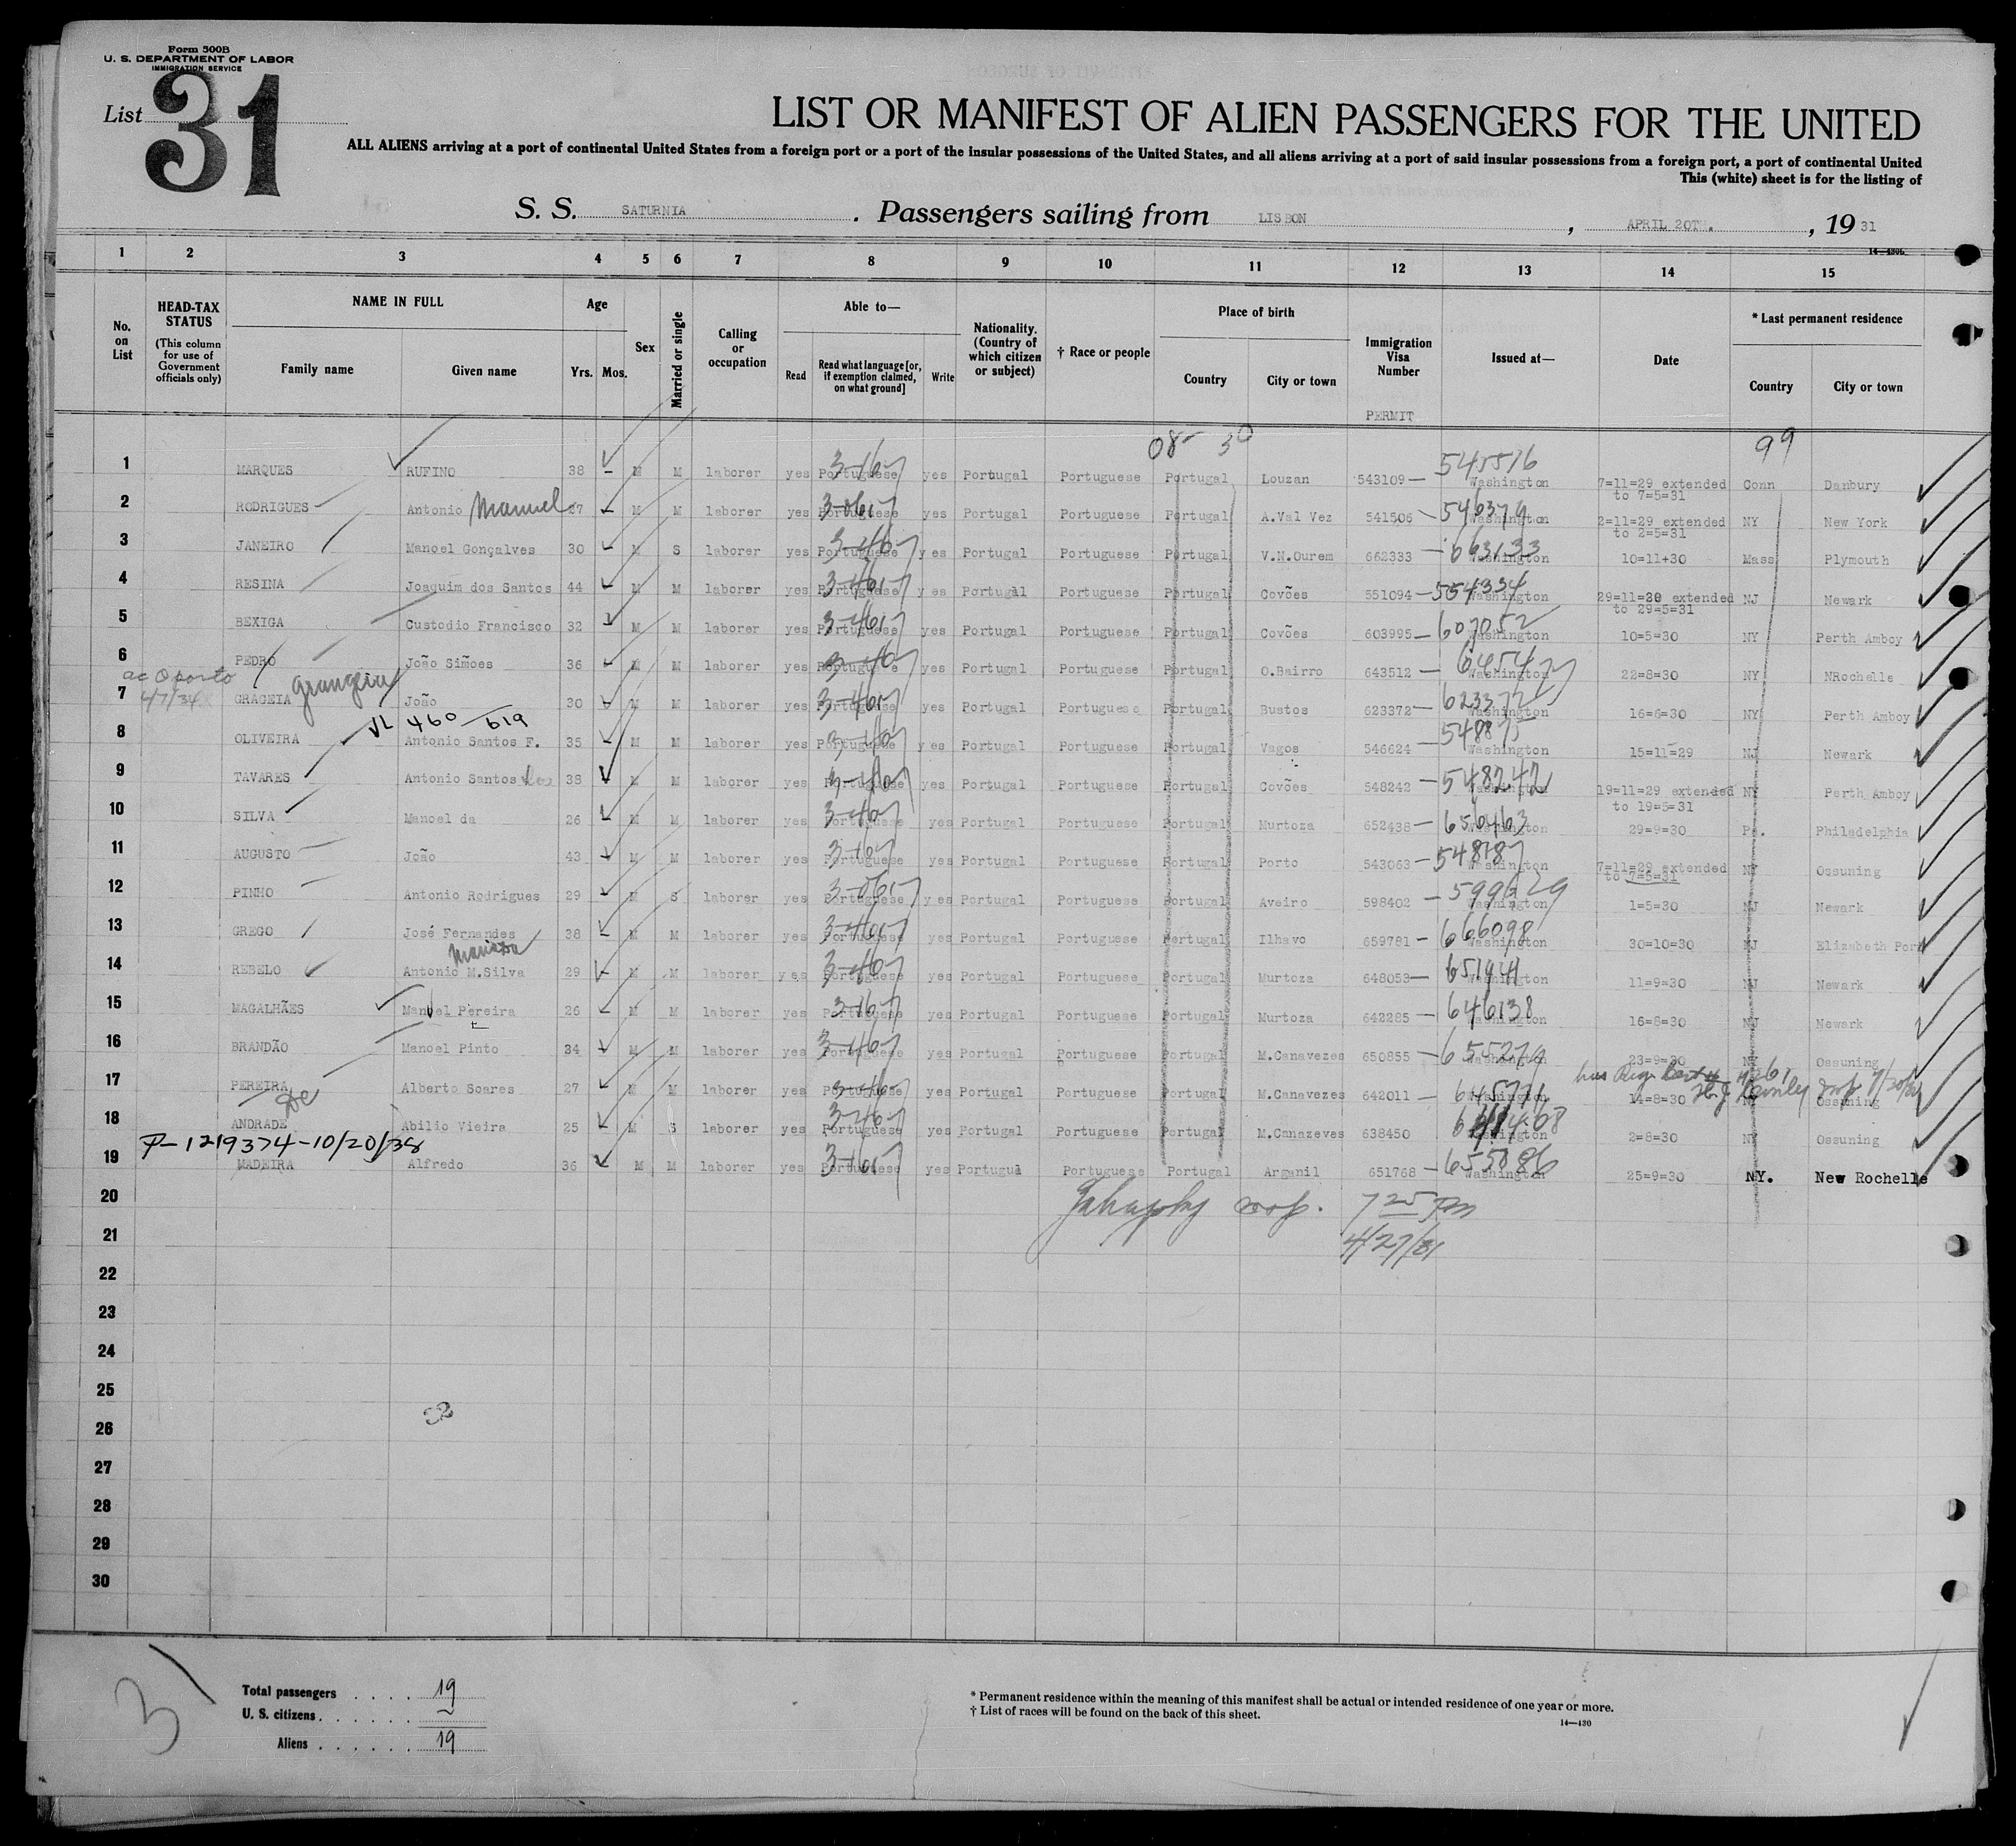 Form 500B
U. S. DEPARTMENT OF LABOR
IMMIGRATION SERVICE
List 31
LIST OR MANIFEST OF ALIEN PASSENGERS FOR THE UNITED
ALL ALIENS arriving at a port of continental United States from a foreign port or a port of the insular possessions of the United States, and all aliens arriving at a port of said insular possessions from a foreign port, a port of continental United
This (white) sheet is for the listing of
S. S. SATURNIA . Passengers sailing from LISBON , APRIL 20TH. , 1931
14—430b
1 2 3 4 5 6 7 8 9 10 11 12 13 14 15
No. on List
HEAD-TAX STATUS (This column for use of Government officials only)
NAME IN FULL
Family name
Given name
Age
Yrs. Mos.
Sex
Married or single
Calling or occupation
Able to—
Read
Read what language [or, if exemption claimed, on what ground]
Write
Nationality. (Country of which citizen or subject)
† Race or people
Place of birth
Country
City or town
Immigration Visa Number
PERMIT
Issued at—
Date
* Last permanent residence
Country
City or town
08- 30
99
1 MARQUES RUFINO 38 – M M laborer yes Portuguese yes Portugal Portuguese Portugal Louzan 543109 — 545516 Washington 7=11=29 extended to 7=5=31 Conn Danbury
2 RODRIGUES Antonio Manuel 37 M M laborer yes Portuguese yes Portugal Portuguese Portugal A.Val Vez 541506 — 546379 Washington 2=11=29 extended to 2=5=31 NY New York
3 JANEIRO Manoel Gonçalves 30 M S laborer yes Portuguese yes Portugal Portuguese Portugal V.N.Ourem 662333 — 663133 Washington 10=11+30 Mass Plymouth
4 RESINA Joaquim dos Santos 44 M M laborer yes Portuguese yes Portugal Portuguese Portugal Covões 551094 — 554334 Washington 29=11=29 extended to 29=5=31 NJ Newark
5 BEXIGA Custodio Francisco 32 M M laborer yes Portuguese yes Portugal Portuguese Portugal Covões 603995 — 607052 Washington 10=5=30 NY Perth Amboy
6 PEDRO João Simões 36 M M laborer yes Portuguese yes Portugal Portuguese Portugal O.Bairro 643512 — Washington 22=8=30 NY NRochelle
ac Oporto
4/7/34
7 GRAGEIA Grangeia João 30 M M laborer yes Portuguese yes Portugal Portuguese Portugal Bustos 623372 — 623372 Washington 16=6=30 NY Perth Amboy
VL 460—619
8 OLIVEIRA Antonio Santos F. 35 M M laborer yes Portuguese yes Portugal Portuguese Portugal Vagos 546624 — 548875 Washington 15=11=29 NJ Newark
9 TAVARES Antonio Santos dos 38 M M laborer yes Portuguese yes Portugal Portuguese Portugal Covões 548242 — 548242 Washington 19=11=29 extended to 19=5=31 NY Perth Amboy
10 SILVA Manoel da 26 M M laborer yes Portuguese yes Portugal Portuguese Portugal Murtoza 652438 — 650463 Washington 29=9=30 Pa. Philadelphia
11 AUGUSTO João 43 M M laborer yes Portuguese yes Portugal Portuguese Portugal Porto 543063 — 548187 Washington 7=11=29 extended to 7=5=31 NY Ossuning
12 PINHO Antonio Rodrigues 29 M S laborer yes Portuguese yes Portugal Portuguese Portugal Aveiro 598402 — 599629 Washington 1=5=30 NJ Newark
13 GREGO José Fernandes 38 M M laborer yes Portuguese yes Portugal Portuguese Portugal Ilhavo 659781 — 666098 Washington 30=10=30 NJ Elizabeth Port
14 REBELO Antonio M.Silva 29 M M laborer yes Portuguese yes Portugal Portuguese Portugal Murtoza 648053 — 651941 Washington 11=9=30 NJ Newark
15 MAGALHÃES Manoel Pereira 26 M M laborer yes Portuguese yes Portugal Portuguese Portugal Murtoza 642285 — 646138 Washington 16=8=30 NJ Newark
16 BRANDÃO Manoel Pinto 34 M M laborer yes Portuguese yes Portugal Portuguese Portugal M.Canavezes 650855 — 655279 Washington 23=9=30 NY Ossuning
17 PEREIRA Alberto Soares 27 M M laborer yes Portuguese yes Portugal Portuguese Portugal M.Canavezes 642011 — 645776 Washington 14=8=30 NY Ossuning
De
18 ANDRADE Abilio Vieira 25 M S laborer yes Portuguese yes Portugal Portuguese Portugal M.Canazeves 638450 Washington 2=8=30 NY Ossuning
P-1219374-10/20/38
19 MADEIRA Alfredo 36 M M laborer yes Portuguese yes Portugal Portuguese Portugal Arganil 651768 — 655886 Washington 25=9=30 NY. New Rochelle
20
7 25 PM
21
4/27/31
22
23
24
25
26
27
28
29
30
31
Total passengers . . . . 19
U. S. citizens . . . . . .
Aliens . . . . . . 19
* Permanent residence within the meaning of this manifest shall be actual or intended residence of one year or more.
† List of races will be found on the back of this sheet.
14—430